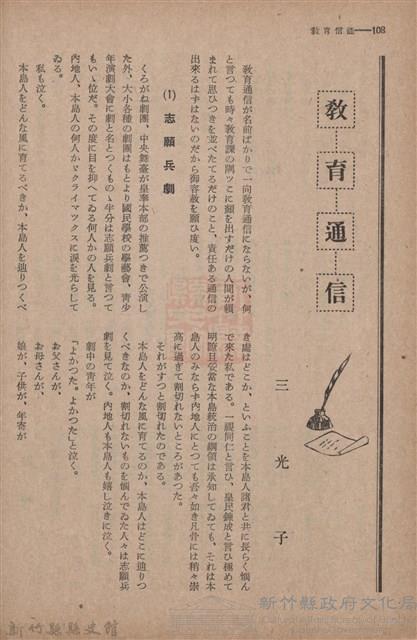 教育通信——108
教育通信
三光子
教育通信が名前ばかりで一向教育通信にならないが、何
と言つても時々教育課の隅ッこに顔を出すだけの人間が頼
まれて思ひつきを並べたてるだけのこと、責任ある通信の
出来るはずはないのだから御容赦を願ひ度い。
(1) 志願兵劇
くろがね劇團、中央舞臺が皇奉本部の推薦つきで公演し
た外、大小各種の劇團はもとより國民學校の學藝會、青少
年演劇大會に劇と名とつくものゝ半分は志願兵劇と言つて
もいゝ位だ。その度に目を抑へてゐる何人かの人を見る。
内地人、本島人の何人かゞクライマックスに涙を光らして
ゐる。
私も泣く。
本島人をどんな風に育てるべきか、本島人を辿りつくべ
き處はどこか、といふことを本島人諸君と共に長らく惱ん
で來た私である。一視同仁と言ひ、皇民錬成と言ひ極めて
明瞭且妥當な本島統治の綱領は承知してゐても、それは本
島人のみならず内地人にとつても吾々如き凡骨には稍々崇
高に過ぎて割切れないところがあつた。
それがすつと割切れたのである。
本島人をどんな風に育てるのか、本島人はどこに辿りつ
くべきなのか、割切れないものを惱んでゐた人々は志願兵
劇を見て泣く。内地人も本島人も嬉し泣きに泣く。
劇中の青年が
「よかつた。よかつた」と泣く。
お父さんが、
お母さんが、
娘が、子供が、年寄が
新竹縣縣史館
新竹縣政府文化局